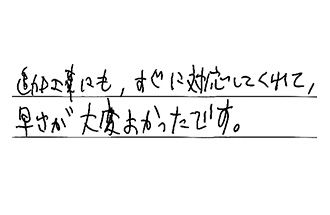 追加工事にも,すぐに対応してくれて,
早さが大変よかったです。